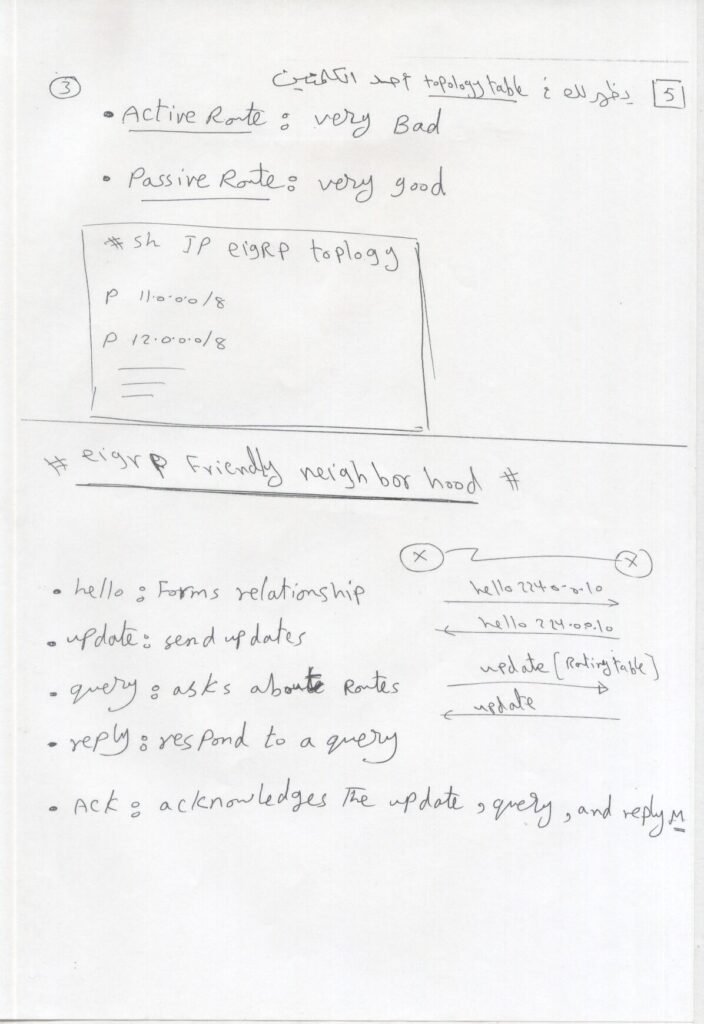 3
5 يظهر لك في topology table احد الكلمتين
• Active Route : very Bad
• Passive Route : very good
# sh IP eigRP toplogy
P 11.0.0.0/8
P 12.0.0.0/8
# eigrp Friendly neighbor hood #
• hello : Forms relationship
• update : send updates
• query : asks aboute Routes
• reply : respond to a query
• Ack : acknowledges The update , query , and reply M
X X
hello 224.0.0.10
hello 224.0.0.10
update [Routing table]
update